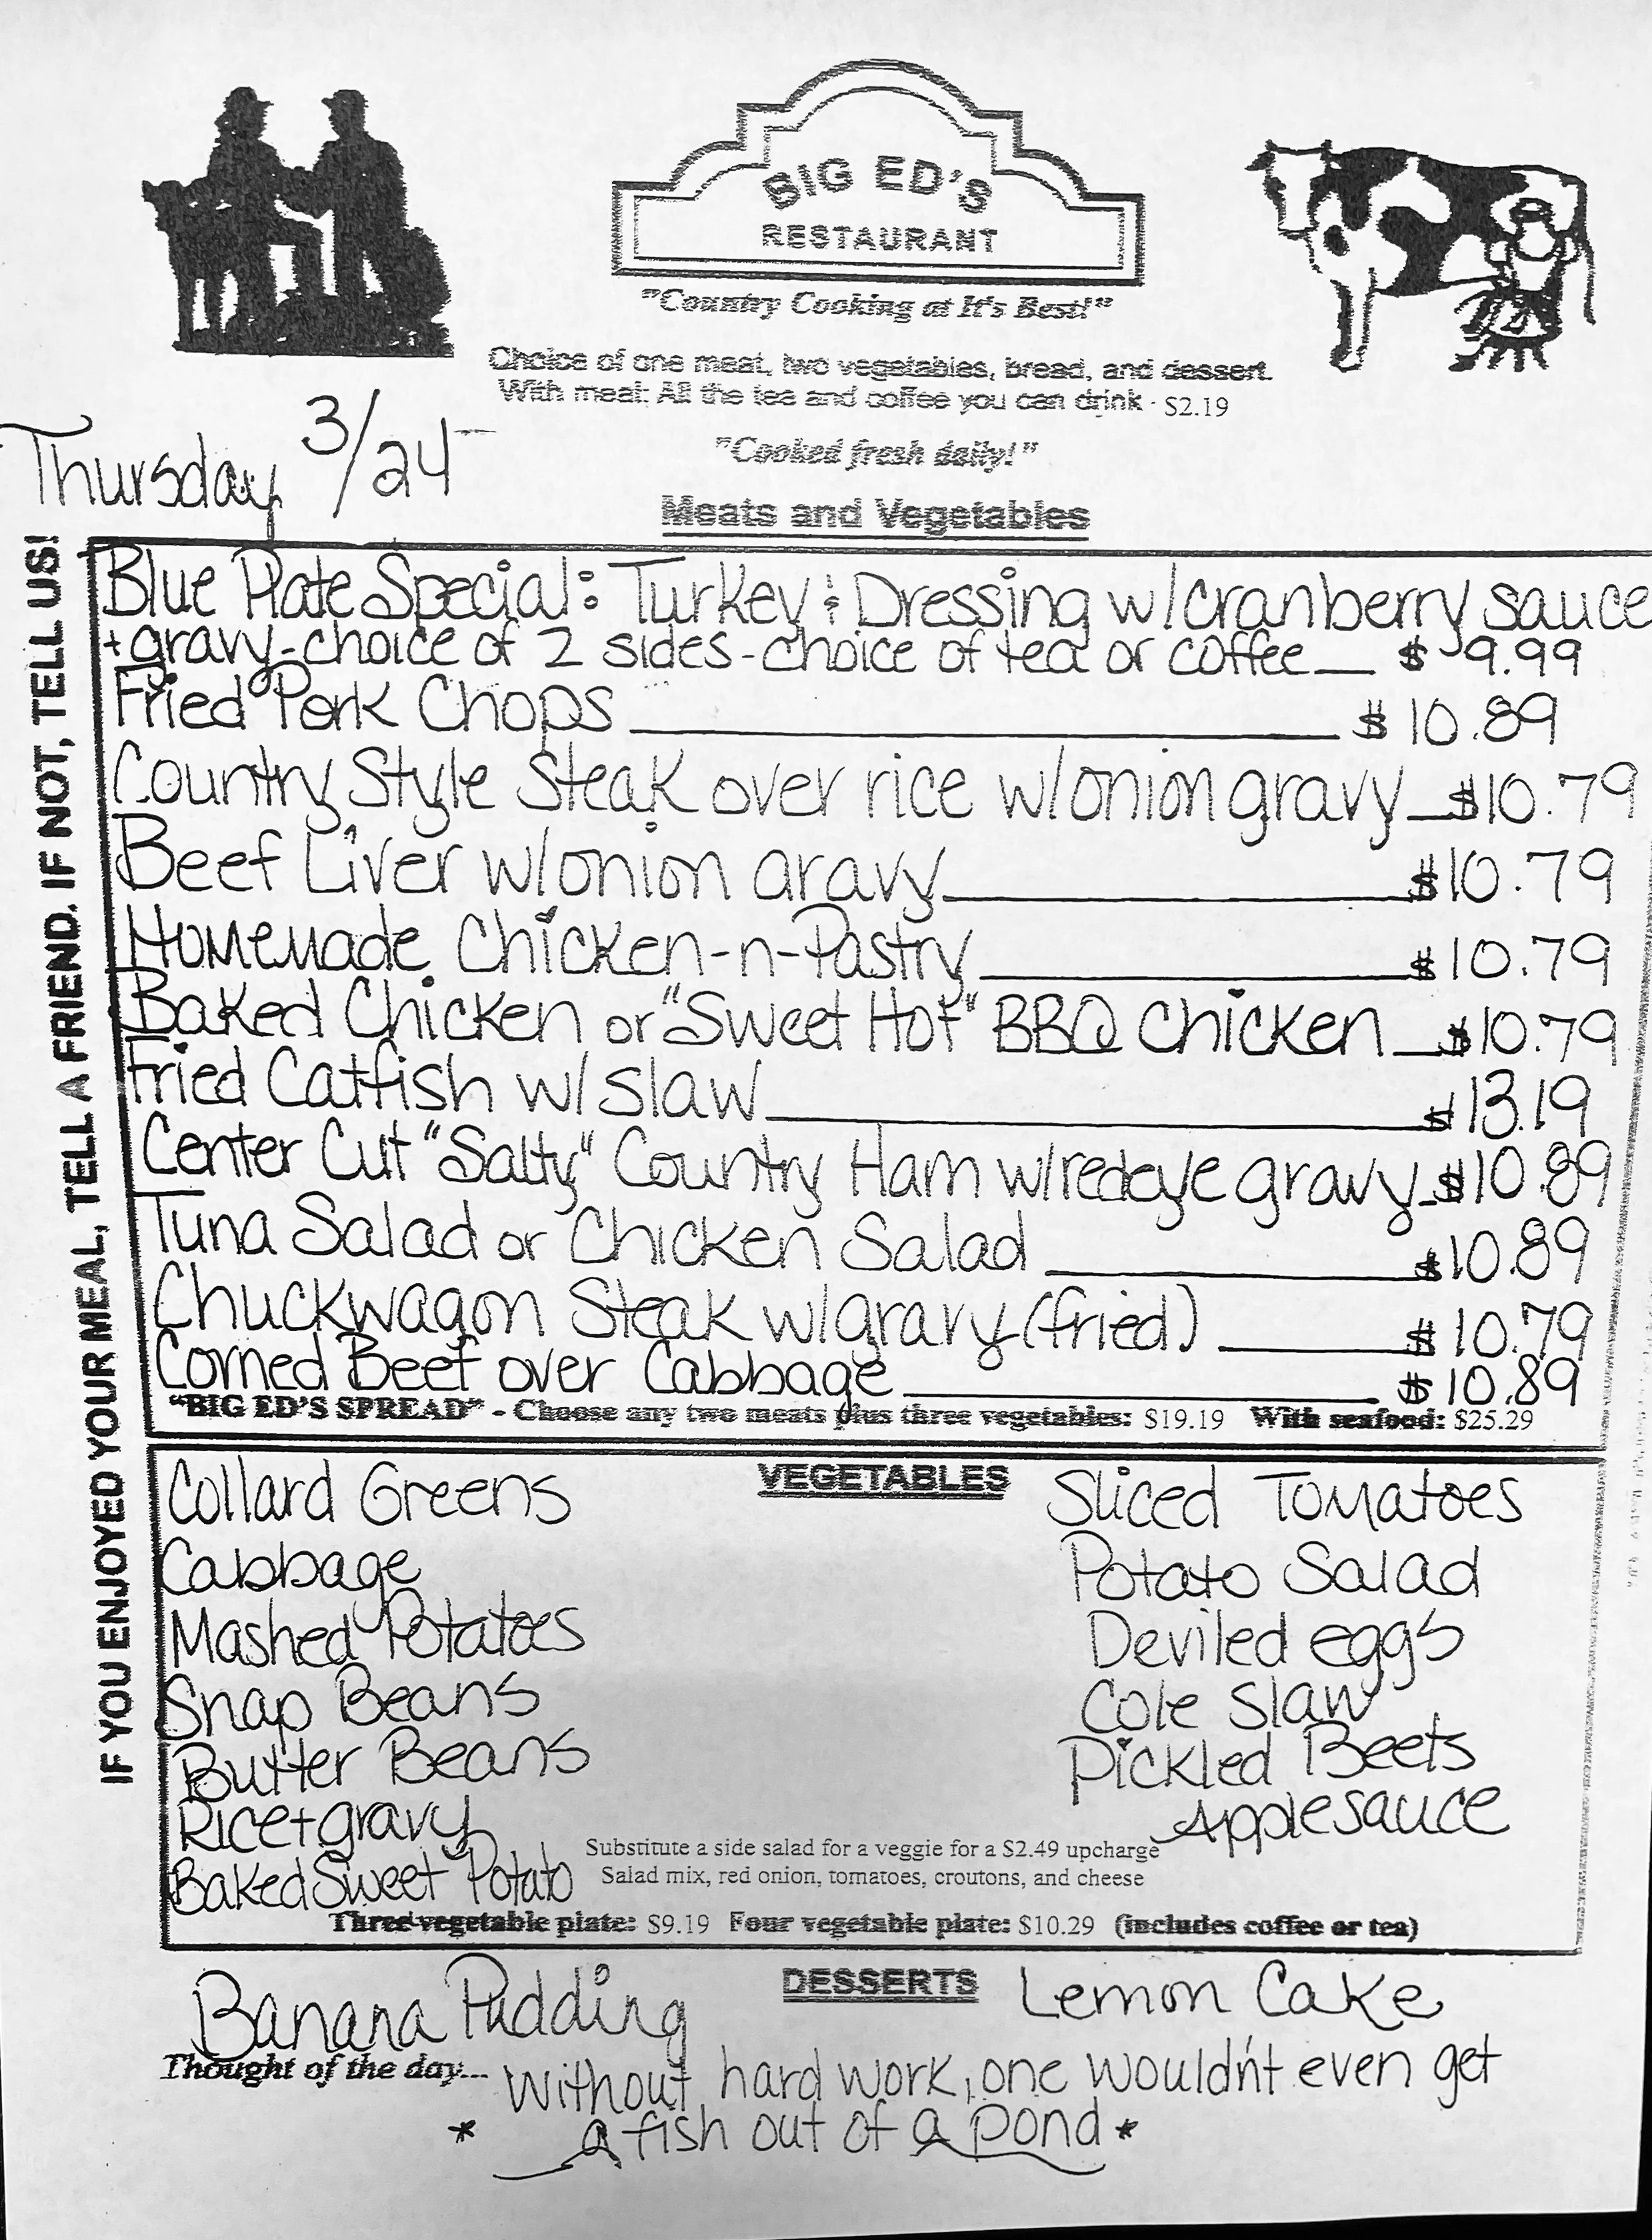 BIG ED'S
RESTAURANT
"Country Cooking at It's Best!"
Choice of one meat, two vegetables, bread, and dessert.
With meal: All the tea and coffee you can drink - $2.19
Thursday 3/24
"Cooked fresh daily!"
Meats and Vegetables
IF YOU ENJOYED YOUR MEAL, TELL A FRIEND. IF NOT, TELL US!
Blue Plate Special: Turkey & Dressing w/cranberry sauce
+gravy-choice of 2 sides-choice of tea or coffee $9.99
Fried Pork Chops $10.89
Country Style Steak over rice w/onion gravy $10.79
Beef Liver w/onion gravy $10.79
Homemade Chicken-n-Pastry $10.79
Baked Chicken or "Sweet Hot" BBQ Chicken $10.79
Fried Catfish w/ slaw $13.19
Center Cut "Salty" Country Ham w/redeye gravy $10.89
Tuna Salad or Chicken Salad $10.89
Chuckwagon Steak w/gravy (fried) $10.79
Corned Beef over Cabbage $10.89
"BIG ED'S SPREAD" - Choose any two meats plus three vegetables: $19.19 With seafood: $25.29
VEGETABLES
Collard Greens
Cabbage
Mashed Potatoes
Snap Beans
Butter Beans
Rice+gravy
Baked Sweet Potato
Sliced Tomatoes
Potato Salad
Deviled eggs
Cole Slaw
Pickled Beets
Applesauce
Substitute a side salad for a veggie for a $2.49 upcharge
Salad mix, red onion, tomatoes, croutons, and cheese
Three vegetable plate: $9.19 Four vegetable plate: $10.29 (includes coffee or tea)
DESSERTS
Banana Pudding
Lemon Cake
Thought of the day... Without hard work, one wouldn't even get
* a fish out of a pond *